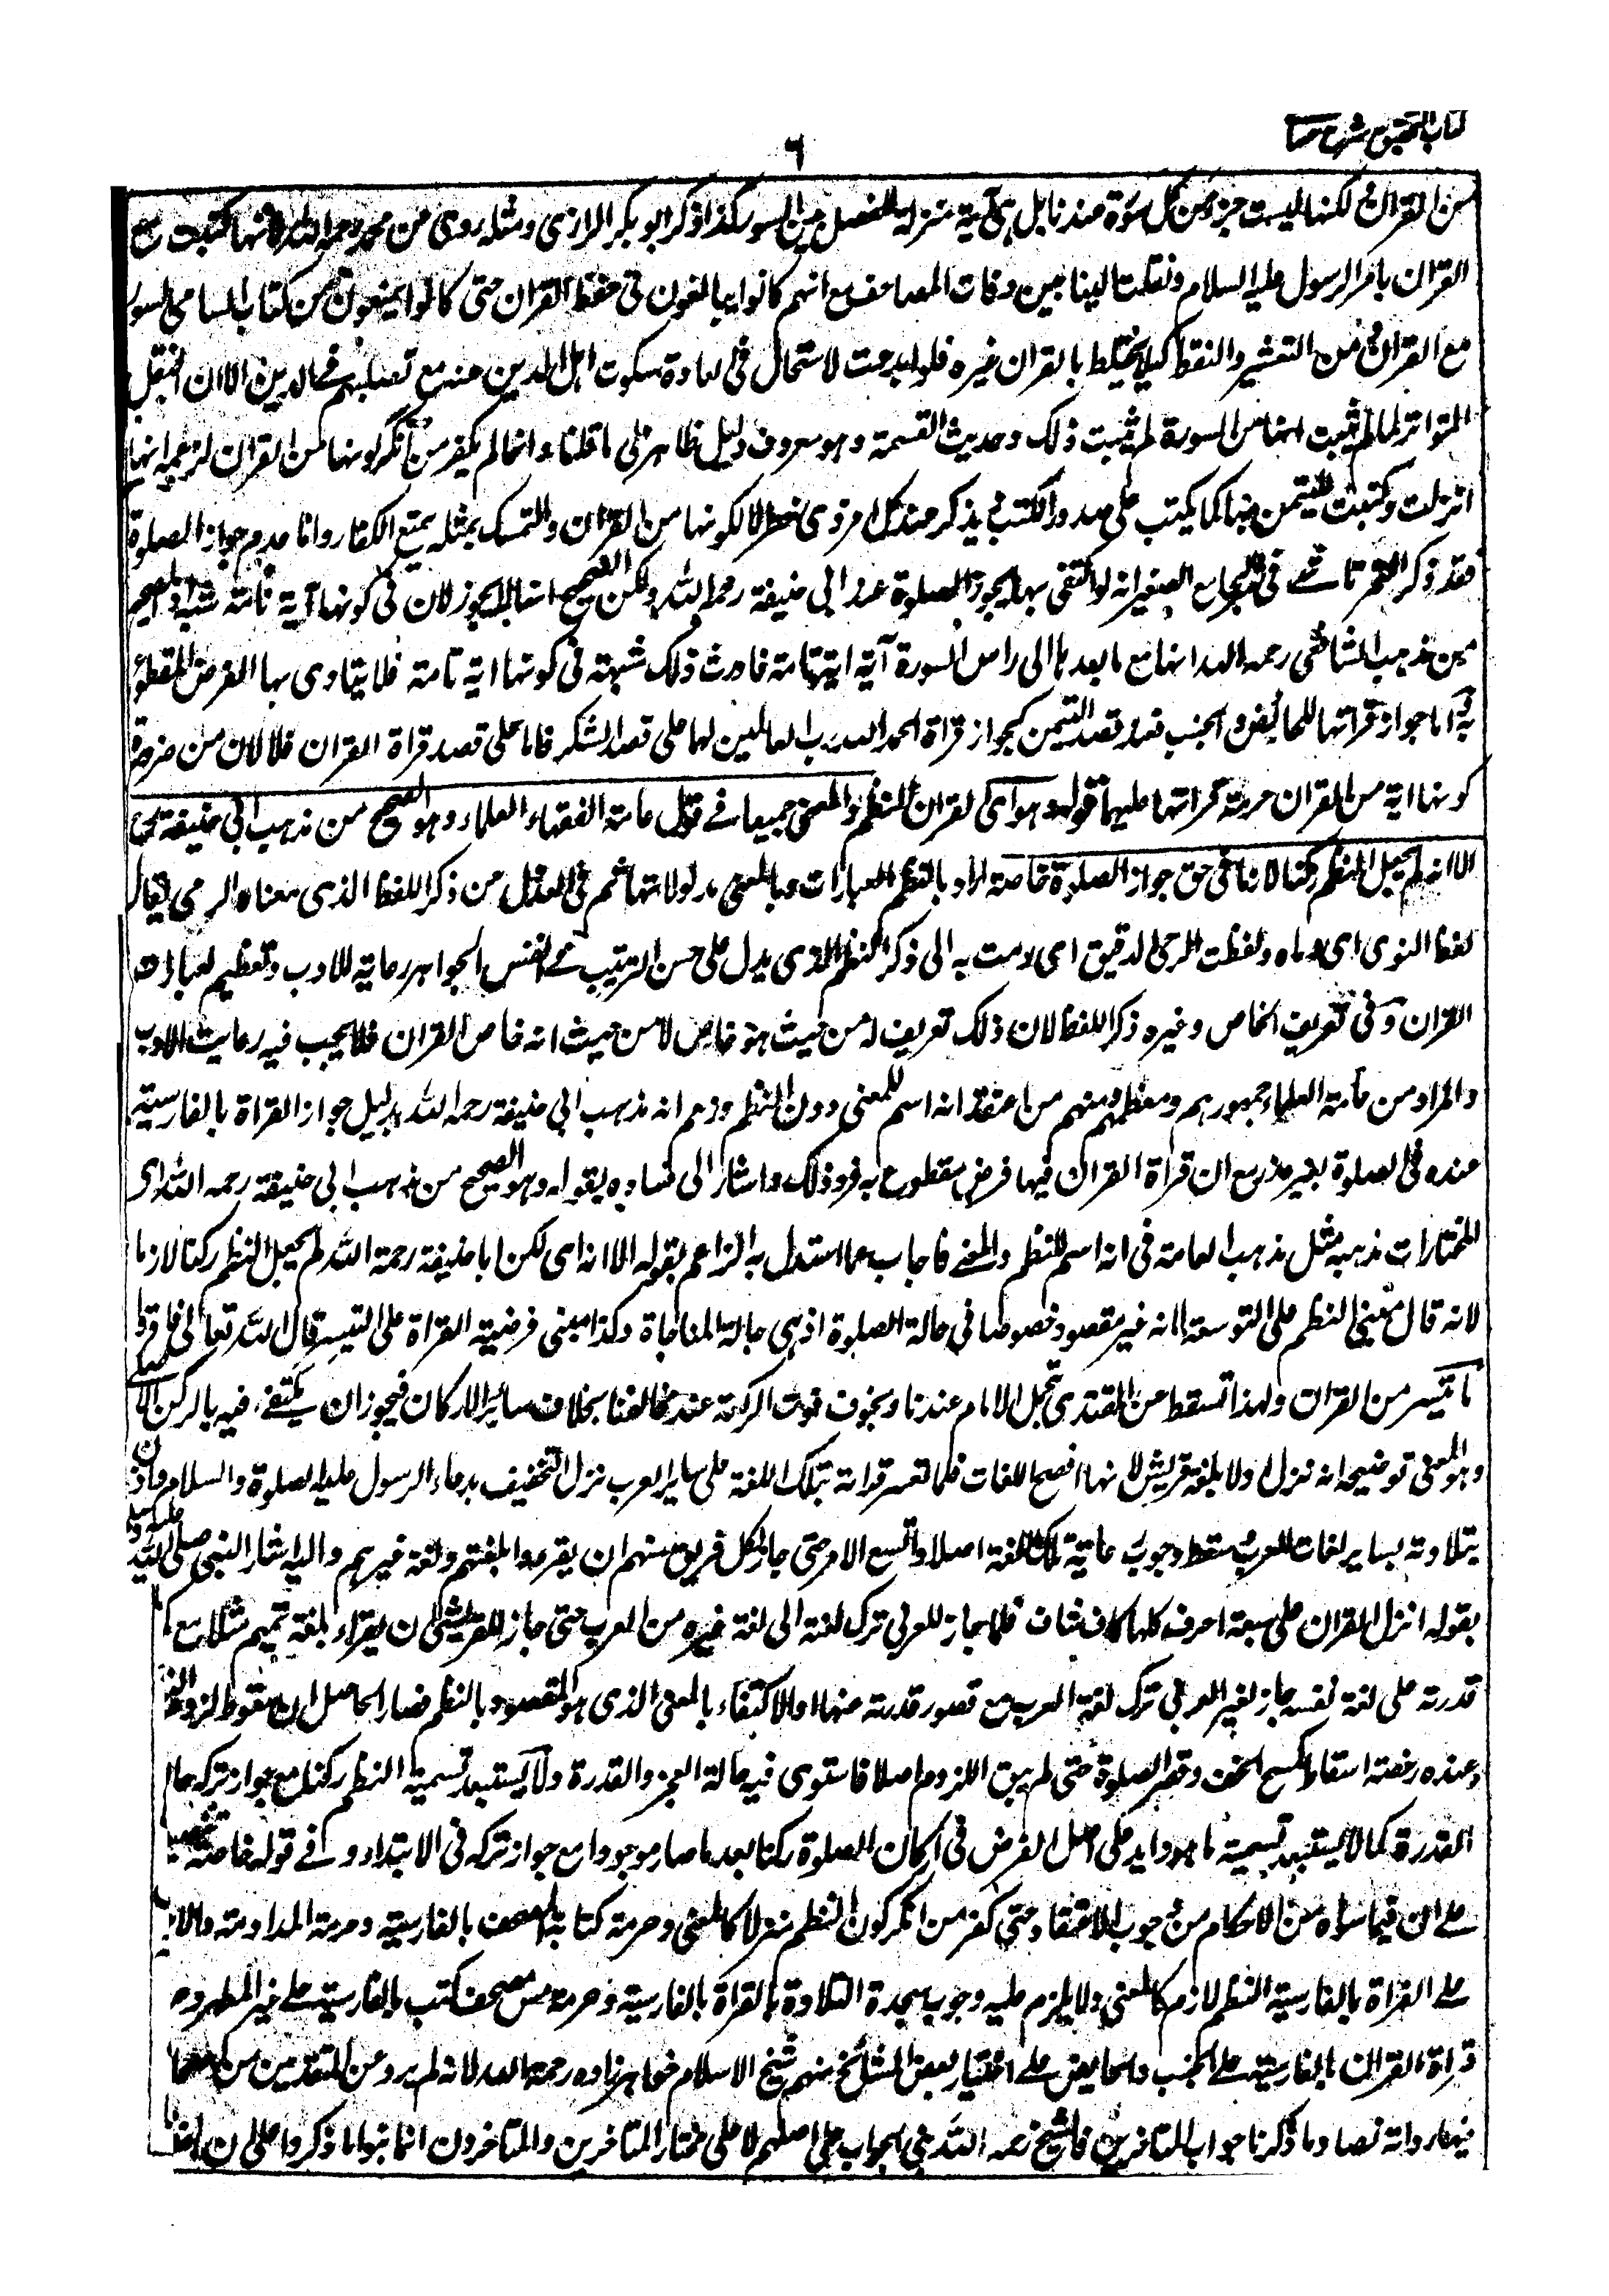 كتاب التحقيق شرح حسامى
٦
من القران لكنها ليست جزء من كل سورة عندنا بل هى آية منزلة للفصل بين السور كذا ذكر ابو بكر الرازى ومثله روى عن محمد رحمه الله لانها كتبت مع
القران بامر الرسول عليه السلام ونقلت الينا بين دفات المصاحف مع انهم كانوا يبالغون فى حفظ القران حتى كانوا يمنعون من كتاب اسامى السور
مع القران ومن التعشير والنقط كيلا يختلط بالقران غيره فلو لم يدعت لاستحال فى العادة سكوت اهل الدين عنه مع تصلبهم فى الدين الا ان النقل
المتواتر لما لم يثبت انها من السورة لم يثبت ذلك وحديث القسمة وهو معروف دليل ظاهر على ما قلنا وانما لم يكفر من انكر كونها من القران لزعمه انها
انزلت وكتبت للتيمن بها كما يكتب على صدور الكتب ويذكر عند كل امر ذى خطر لا لكونها من القران والتمسك بمثله يمنع الكفار واما عدم جواز الصلوة
فقد ذكر التمرتاشى فى الجامع الصغير انه لو اكتفى بها يجوز الصلوة عند ابى حنيفة رحمه الله ولكن الصحيح انها لا يجوز لان فى كونها آية تامة شبهة اذ الصحيح
من مذهب الشافعى رحمه الله انها مع ما بعدها الى راس السورة آية تامة فاورث ذلك شبهة فى كونها اية تامة فلا يتادى بها الفرض المقطوع
به اما جواز قراتها للحائض والجنب فعند قصد التيمن كجواز قراة الحمد لله رب العالمين لهما على قصد الشكر فاما على قصد قراة القران فلا لان من ضرورة
كونها اية من القران حرمة قراتها عليهما قوله وهو اى القران النظم والمعنى جميعا فى قول عامة الفقهاء العلماء وهو الصحيح من مذهب ابى حنيفة رح
الا انه لم يجعل النظم ركنا لازما فى حق جواز الصلوة خاصة اراد بالنظم العبارات وبالمعنى مدلولاتها ثم فى العدول من ذكر اللفظ الذى معناه الرمى يقال
لفظ النوى اى رماه ولفظت الرحى الدقيق اى رمت به الى ذكر النظم الذى يدل على حسن الترتيب فى انفس الجواهر رعاية للادب وتعظيم لعبارات
القران وفى تعريف الخاص وغيره ذكر اللفظ لان ذلك تعريف له من حيث هو خاص لا من حيث انه خاص القران فلا يجب فيه رعاية الادب
والمراد من عامة العلماء جمهورهم ومعظمهم ومنهم من اعتقد انه اسم للمعنى دون النظم وزعم انه مذهب ابى حنيفة رحمه الله بدليل جواز القراة بالفارسية
عنده فى الصلوة بغير عذر مع ان قراة القران فيها فرض مقطوع به فرد ذلك واشار الى فساده بقوله وهو الصحيح من مذهب ابى حنيفة رحمه الله اى
المختار ان مذهبه مثل مذهب العامة فى انه اسم للنظم والمعنى فاجاب عما استدل به الزاعم بقوله الا انه اى لكن ابا حنيفة رحمة الله لم يجعل النظم ركنا لازما
لانه قال مبنى النظم على التوسعة لانه غير مقصود خصوصا فى حالة الصلوة اذ هى حالة المناجاة وكذا مبنى فرضية القراة على التيسير قال الله تعالى فاقرءوا
ما تيسر من القران ولهذا تسقط عن المقتدى بتحمل الامام عندنا وبخوف فوت الركعة عند مخالفنا بخلاف سائر الاركان فيجوز ان يكتفى فيه بالركن الاصلى
وهو المعنى توضيحه انه نزل اولا بلغة قريش لانها افصح اللغات فلما تعسر قراءته بتلك اللغة على سائر العرب نزل التخفيف بدعاء الرسول عليه الصلوة والسلام واذن
بتلاوته بسائر لغات العرب وسقط وجوب رعاية تلك اللغة اصلا واتسع الامر حتى جاز لكل فريق منهم ان يقرءوا بلغتهم ولغة غيرهم واليه اشار النبى صلى الله عليه وسلم
بقوله انزل القران على سبعة احرف كلها كاف شاف فلما جاز للعربى ترك لغته الى لغة غيره من العرب حتى جاز للقريشى ان يقراء بلغة تميم مثلا مع كمال
قدرته على لغة نفسه جاز لغير العربى ترك لغة العرب مع قصور قدرته عنها والاكتفاء بالمعنى الذى هو المقصود بالنظم فصار الحاصل ان سقوط لزوم النظم
عنده رخصة اسقاط كمسح الخف وقصر الصلوة حتى لم يبق اللزوم اصلا فاستوى فيه حالة العجز والقدرة ولا يستبعد تسمية النظم ركنا مع جواز تركه حال
القدرة كما لا يستبعد تسمية ما هو زايد على اصل الفرض فى اركان الصلوة ركنا بعد ما صار موجودا مع جواز تركه فى الابتداء وفى قوله خاصة تنبيه
على ان فيما سواه من الاحكام من وجوب الاعتقاد حتى كفر من انكر كون النظم منزلا كالمعنى وحرمة كتابة المصحف بالفارسية وحرمة المداومة والاعتياد
على القراة بالفارسية النظم لازم كالمعنى ولا يلزم عليه وجوب سجدة التلاوة بالقراة بالفارسية وحرمة مس مصحف كتب بالفارسية على غير المطهر وحرمة
قراة القران بالفارسية على الجنب والحايض على اختيار بعض المشائخ منهم شيخ الاسلام خواهر زاده رحمة الله لانه لم يرو عن المتقدمين من اصحابنا
فيها رواية نصا وما ذكرنا جواب المتاخرين فالشيخ رحمه الله بنى الجواب على اصلهم لا على مختار المتاخرين والمتاخرون انما بنوا ما ذكروا على ان